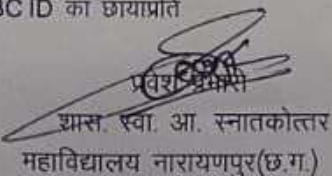 BC ID का छायाप्रति
प्रवेश प्रभारी
शास. स्वा. आ. स्नातकोत्तर
महाविद्यालय नारायणपुर(छ.ग.)